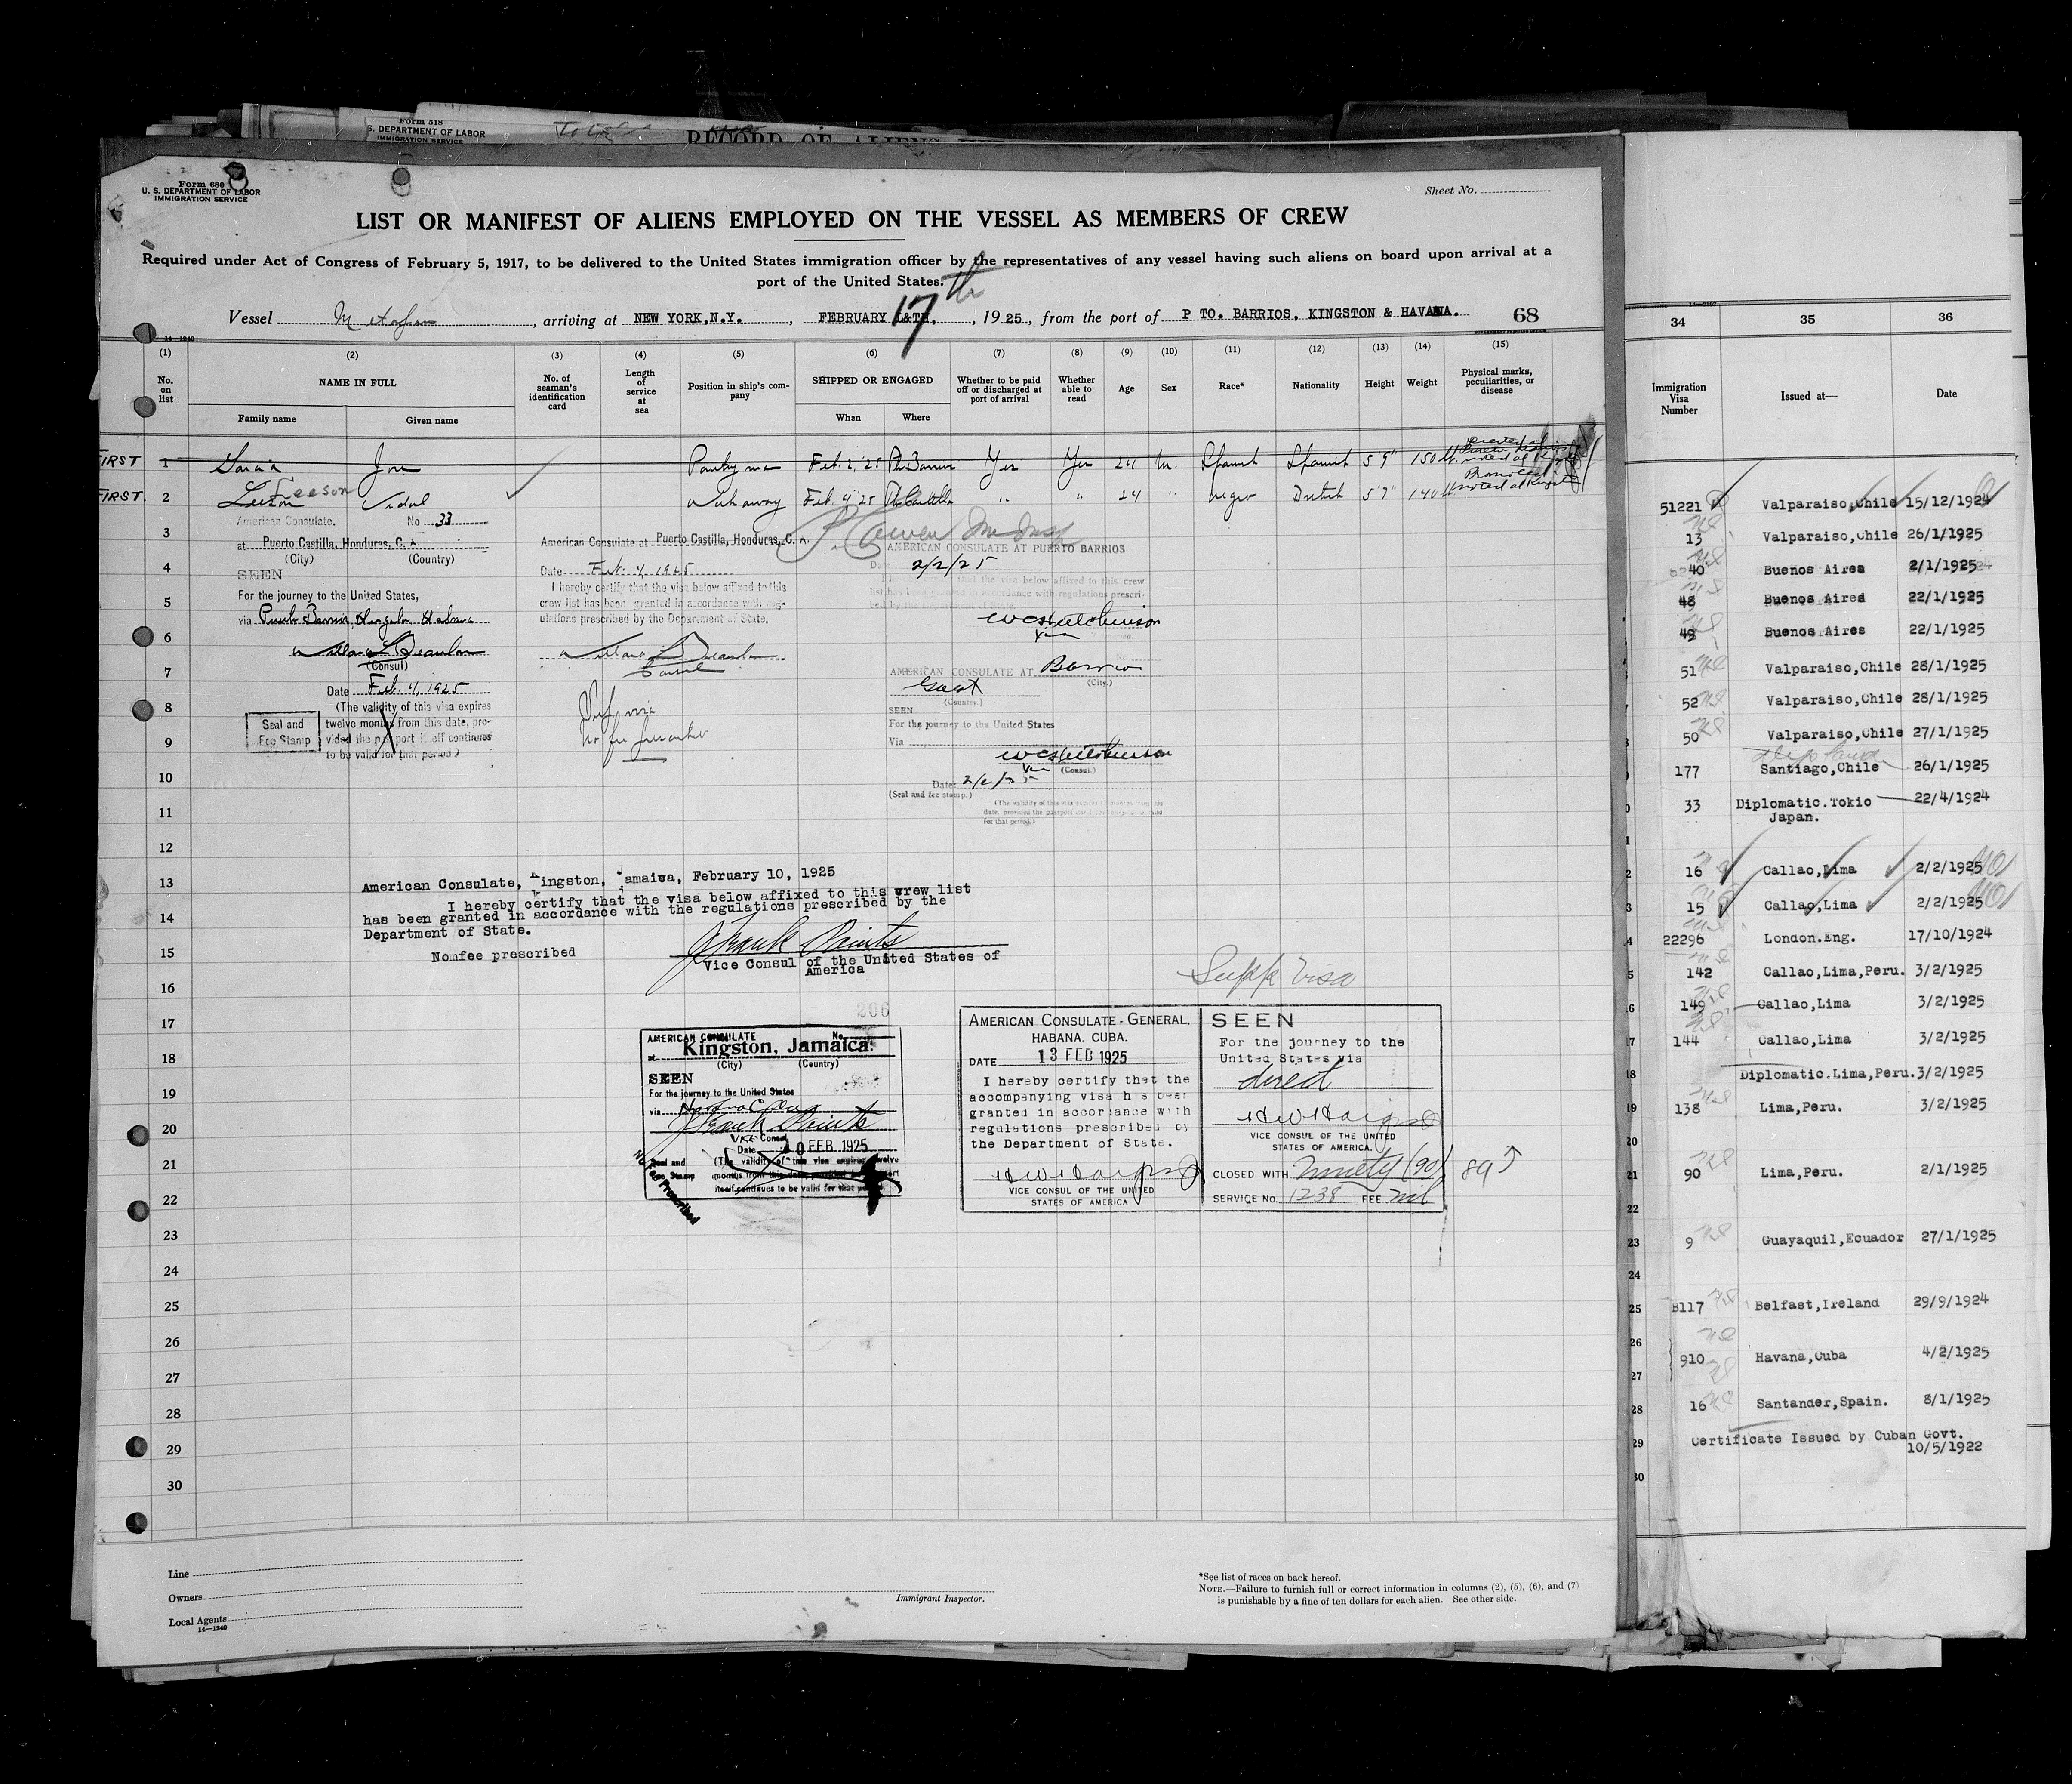 Form 518
S. DEPARTMENT OF LABOR
IMMIGRATION SERVICE
RECORD OF ALIENS
Form 680
U. S. DEPARTMENT OF LABOR
IMMIGRATION SERVICE
Sheet No.
LIST OR MANIFEST OF ALIENS EMPLOYED ON THE VESSEL AS MEMBERS OF CREW
Required under Act of Congress of February 5, 1917, to be delivered to the United States immigration officer by the representatives of any vessel having such aliens on board upon arrival at a
port of the United States.
Vessel Metapan, arriving at NEW YORK,N.Y., FEBRUARY 17th, 1925, from the port of P TO. BARRIOS, KINGSTON & HAVANA. 68
14-1240
(1) (2) (3) (4) (5) (6) (7) (8) (9) (10) (11) (12) (13) (14) (15)
No. on list NAME IN FULL No. of seaman's identification card Length of service at sea Position in ship's company SHIPPED OR ENGAGED Whether to be paid off or discharged at port of arrival Whether able to read Age Sex Race* Nationality Height Weight Physical marks, peculiarities, or disease
Family name Given name When Where
FIRST 1 Garcia Jose Pantryman Feb. 2, '25 Pto Barrios Yes Yes 24 M. Spanish Spanish 5 9" 150
FIRST 2 Leeson Vidal Feb 4 '25 Pto Castilla " " 24 " Negro British 5'7" 140 noted at Kingston
3
4
5
6
7
8
9
10
11
12
13
14
15
16
17
18
19
20
21
22
23
24
25
26
27
28
29
30
American Consulate. No 33
at Puerto Castilla, Honduras, C. A.
(City) (Country)
SEEN
For the journey to the United States,
via Puerto Barrios, Kingston Habana
(Consul)
Date Feb. 4, 1925
(The validity of this visa expires
twelve months from this date, pro-
vided the passport itself continues
to be valid for that period.)
Seal and
Fee Stamp
American Consulate at Puerto Castilla, Honduras, C. A.
Date Feb. 4, 1925
I hereby certify that the visa below affixed to this
crew list has been granted in accordance with reg-
ulations prescribed by the Department of State.
Consul
No fee prescribed
AMERICAN CONSULATE AT PUERTO BARRIOS
Date 2/2/25
that the visa below affixed to this crew
list has been granted in accordance with regulations prescri-
bed by the Department of State.
AMERICAN CONSULATE AT Barrios
(City.)
Guat
(Country.)
SEEN
For the journey to the United States
Via
(Consul.)
Date 2/2/25
(Seal and fee stamp.)
American Consulate, Kingston, Jamaica, February 10, 1925
I hereby certify that the visa below affixed to this crew list
has been granted in accordance with the regulations prescribed by the
Department of State.
Nomfee prescribed
Vice Consul of the United States of
America
Supp Visa
206
AMERICAN CONSULATE No.
at Kingston, Jamaica.
(City) (Country)
SEEN
For the journey to the United States
via
Vice Consul
Date 10 FEB 1925
Seal and
Fee Stamp
(The validity of this visa expires twelve
months from this date, provided the passport
itself continues to be valid for that period.)
No Fee Prescribed
AMERICAN CONSULATE-GENERAL,
HABANA. CUBA.
DATE 13 FEB 1925
I hereby certify that the
accompanying visa has been
granted in accordance with
regulations prescribed by
the Department of State.
VICE CONSUL OF THE UNITED
STATES OF AMERICA
SEEN
For the journey to the
United States via
direct
VICE CONSUL OF THE UNITED
STATES OF AMERICA.
CLOSED WITH Ninety (90) 89
SERVICE NO. 1238 FEE nil
Line
Owners
Local Agents
14-1240
Immigrant Inspector.
*See list of races on back hereof.
NOTE.—Failure to furnish full or correct information in columns (2), (5), (6), and (7)
is punishable by a fine of ten dollars for each alien. See other side.
34 35 36
Immigration Visa Number Issued at— Date
51221 Valparaiso,Chile 15/12/1924
13 Valparaiso,Chile 26/1/1925
40 Buenos Aires 2/1/1925
48 Buenos Aires 22/1/1925
49 Buenos Aires 22/1/1925
51 Valparaiso,Chile 28/1/1925
52 Valparaiso,Chile 28/1/1925
50 Valparaiso,Chile 27/1/1925
177 Santiago,Chile 26/1/1925
33 Diplomatic.Tokio 22/4/1924
Japan.
16 Callao,Lima 2/2/1925
15 Callao,Lima 2/2/1925
22296 London.Eng. 17/10/1924
142 Callao,Lima,Peru. 3/2/1925
149 Callao,Lima 3/2/1925
144 Callao,Lima 3/2/1925
Diplomatic.Lima,Peru. 3/2/1925
138 Lima,Peru. 3/2/1925
90 Lima,Peru. 2/1/1925
9 Guayaquil,Ecuador 27/1/1925
8117 Belfast,Ireland 29/9/1924
910 Havana,Cuba 4/2/1925
16 Santander,Spain. 8/1/1925
Certificate Issued by Cuban Govt.
10/5/1922